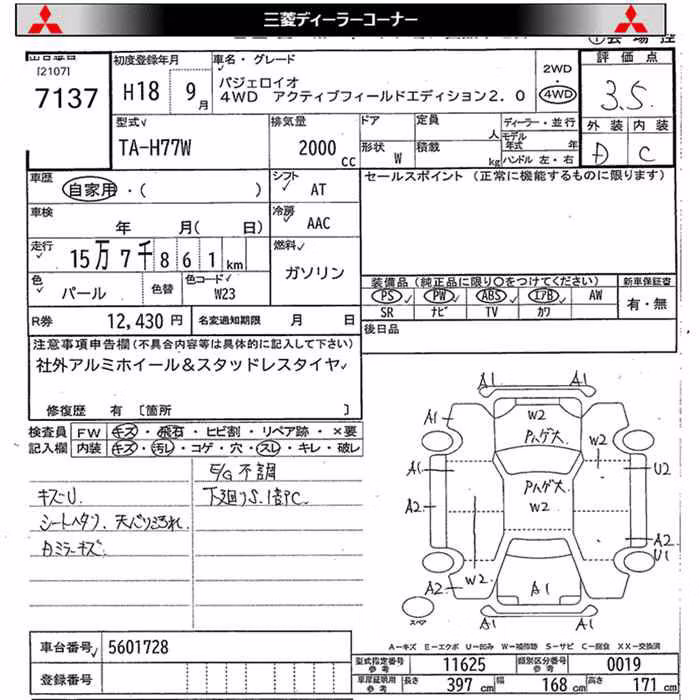 三菱ディーラーコーナー
[2107]
7137
初度登録年月
H18 9月
車名・グレード
パジェロイオ
4WD アクティブフィールドエディション2.0
2WD
・
4WD
評価点
3.5
外装 内装
D C
型式
TA-H77W
排気量
2000 cc
ドア
形状 W
定員 人
積載 kg
ディーラー・並行
モデル年式 年
ハンドル 左・右
車歴
自家用・( )
シフト
AT
車検
年 月( 日)
冷房
AAC
走行
15万7千861km
燃料
ガソリン
色
パール
色替
色コード
W23
R券 12,430円
名変通知期限 月 日
セールスポイント (正常に機能するものに限ります)
装備品 (純正品に限り○をつけてください)
PS PW ABS エアB AW
SR ナビ TV カワ
新車保証書
有・無
後日品
注意事項申告欄(不具合内容等は具体的に記入して下さい)
社外アルミホイール&スタッドレスタイヤ
修復歴 有 [箇所 ]
検査員
記入欄
FW キズ・飛石・ヒビ割・リペア跡・×要
内装 キズ・汚レ・コゲ・穴・スレ・キレ・破レ
E/G不調
キズU.
下廻りS.
シートヘタリ、天バリヨゴレ、
ミラーキズ
A1 A1
A1
W2
Pハゲ大
W2
A1
U2
Pハゲ大
W2
A2
A2
U1
W2
A2
A1
A1 A1
スペア
A-キズ E-エクボ U-凹み W-補修跡 S-サビ C-腐食 XX-交換済
車台番号 5601728
登録番号
型式指定番号 参考 11625
類別区分番号 参考 0019
車庫証明用 参考 長さ 397cm 幅 168cm 高さ 171cm